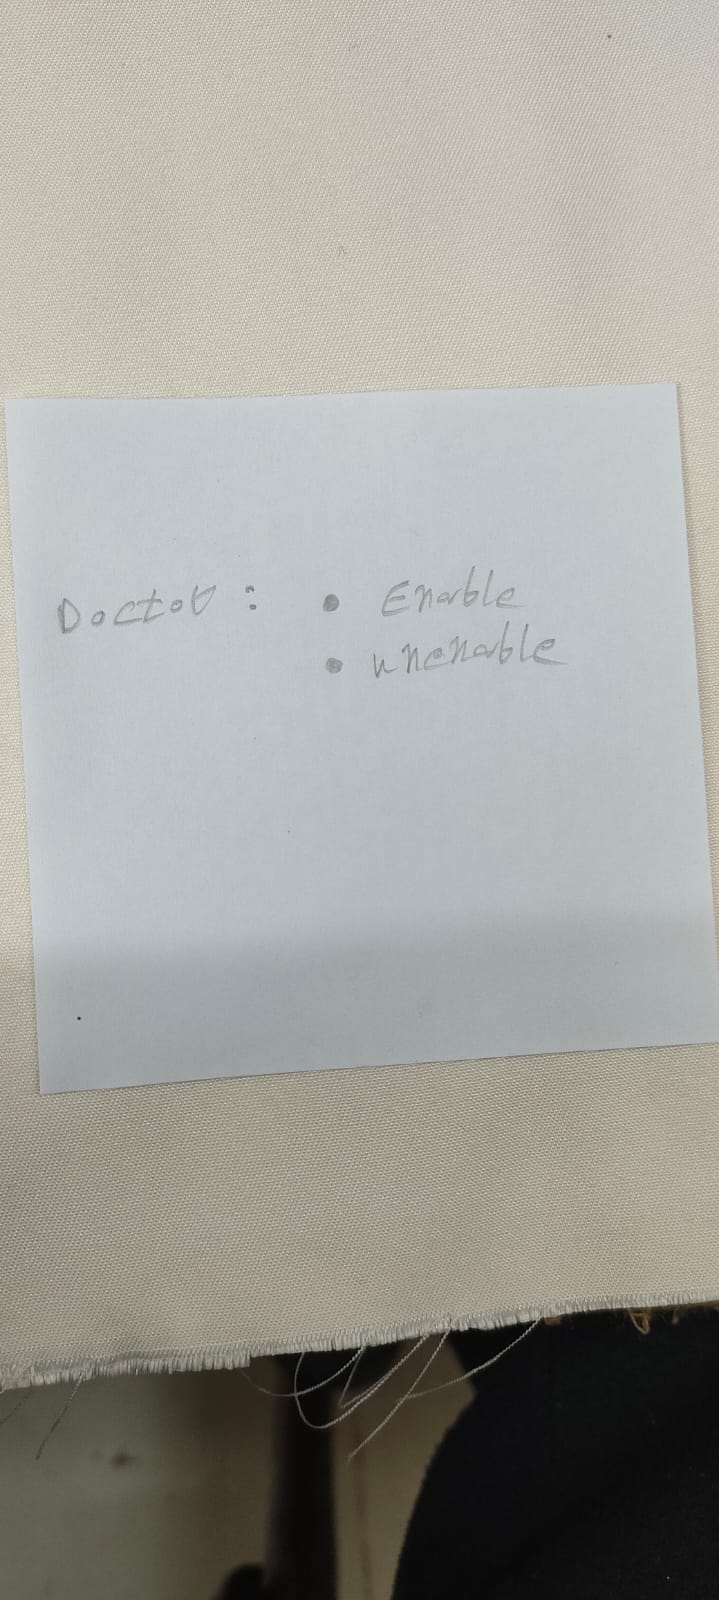 Doctor : • Enable
• unenable